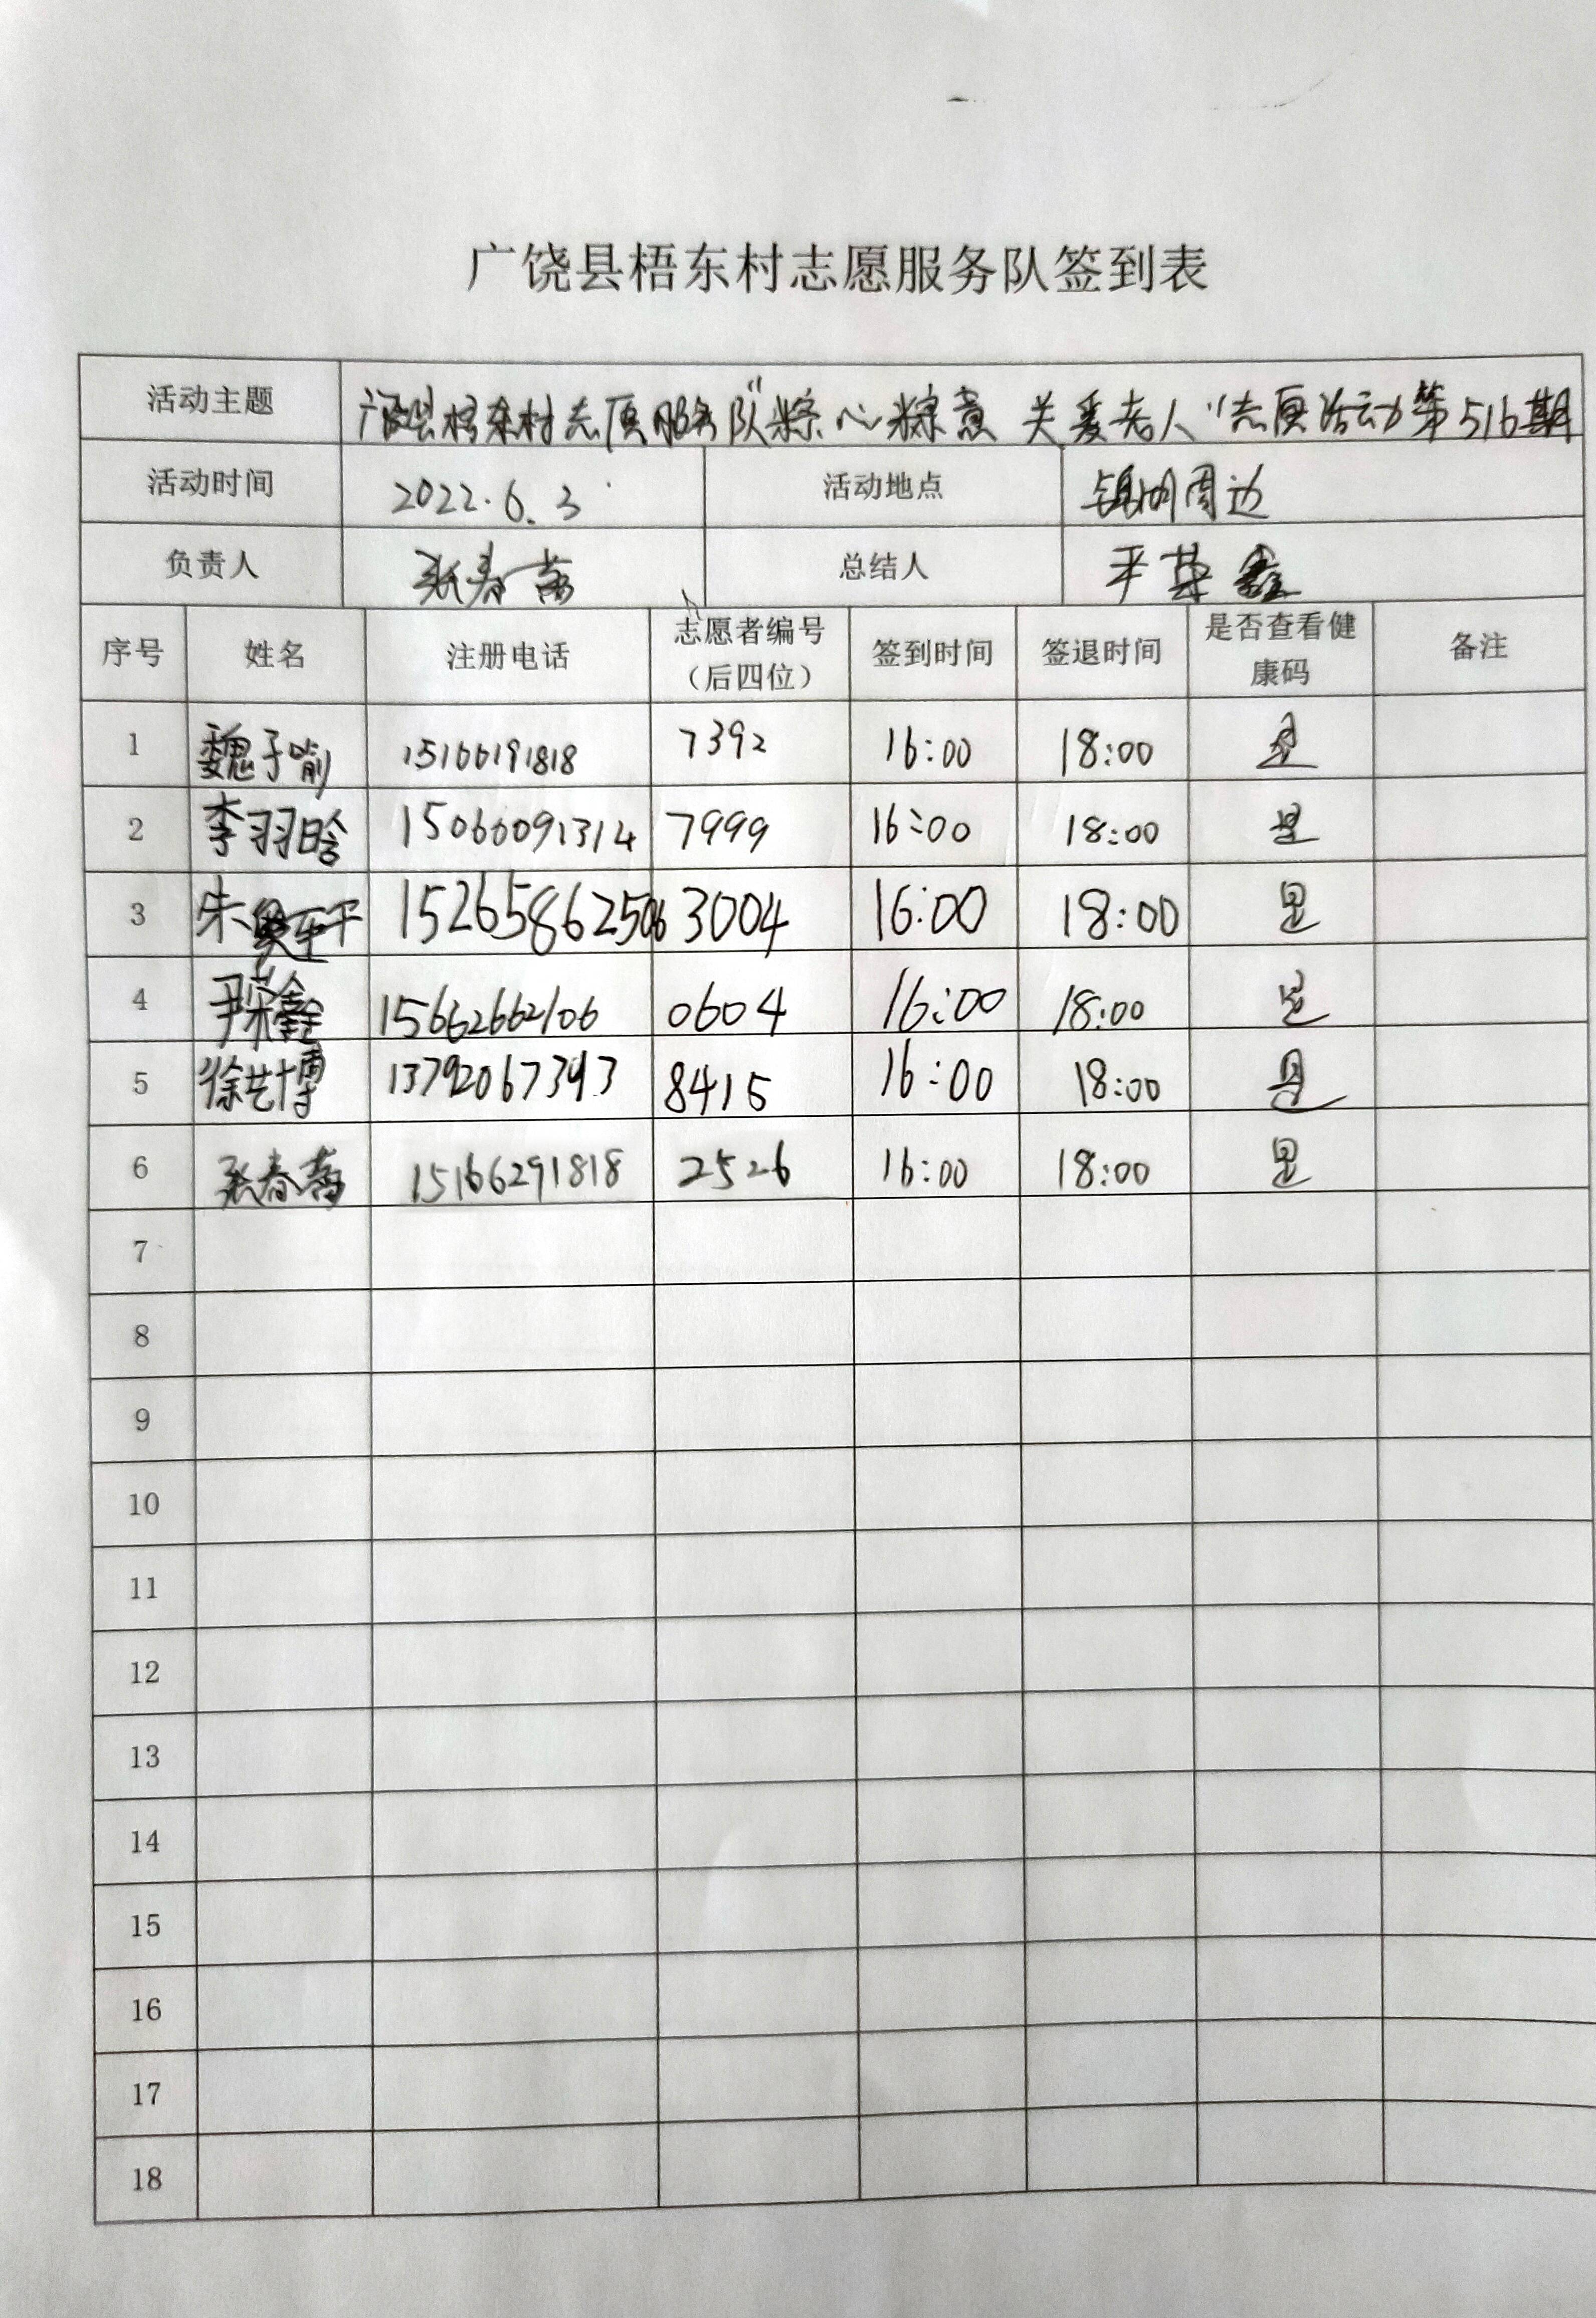 广饶县梧东村志愿服务队签到表
活动主题 广饶县梧东村志愿服务队"粽心粽意 关爱老人"志愿活动第516期
活动时间 2022.6.3 活动地点 周边
负责人 张春 总结人
序号 姓名 注册电话 志愿者编号（后四位） 签到时间 签退时间 是否查看健康码 备注
1 魏子喻 15166191818 7392 16:00 18:00 是
2 李羽晗 15066091314 7999 16:00 18:00 是
3 朱 15265862506 3004 16:00 18:00 是
4 尹荣鑫 15662662106 0604 16:00 18:00 是
5 徐艺博 13792067393 8415 16:00 18:00 是
6 张春 15166291818 2526 16:00 18:00 是
7
8
9
10
11
12
13
14
15
16
17
18